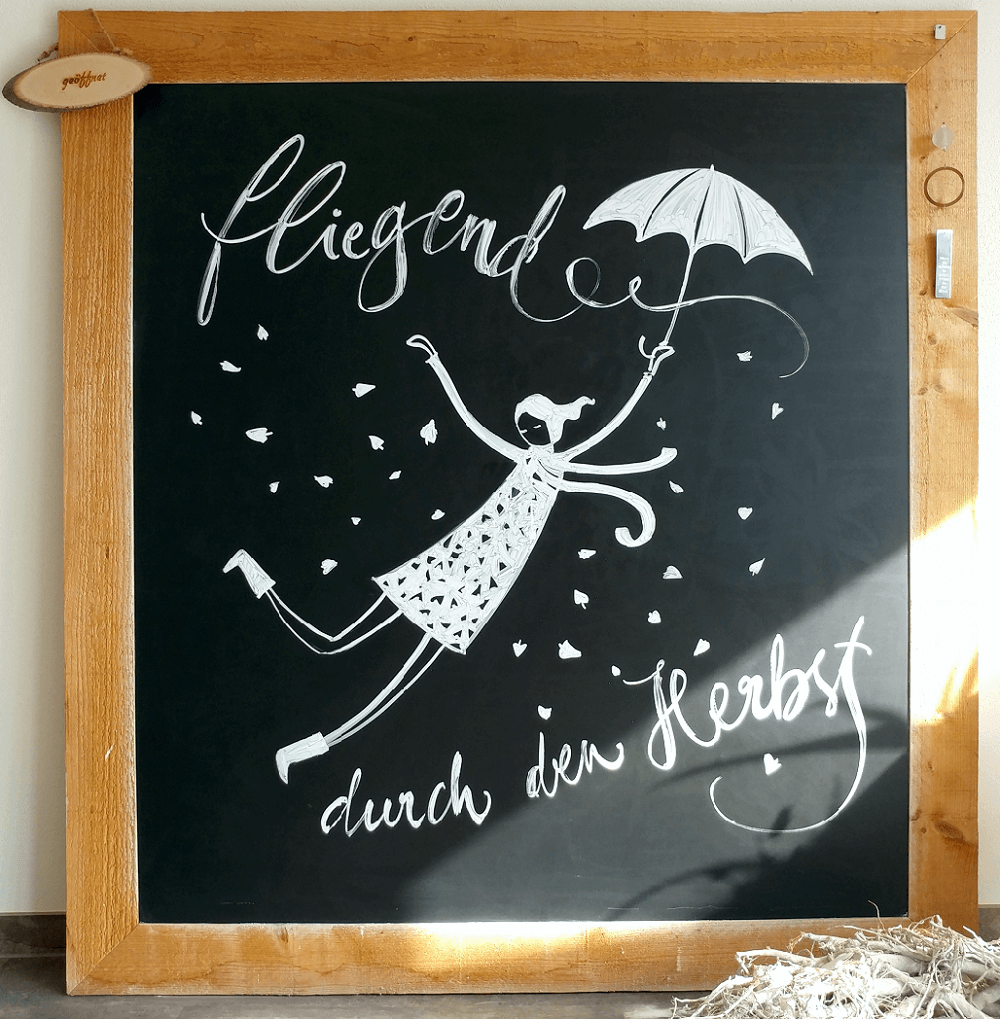 geöffnet
fliegend
durch den Herbst